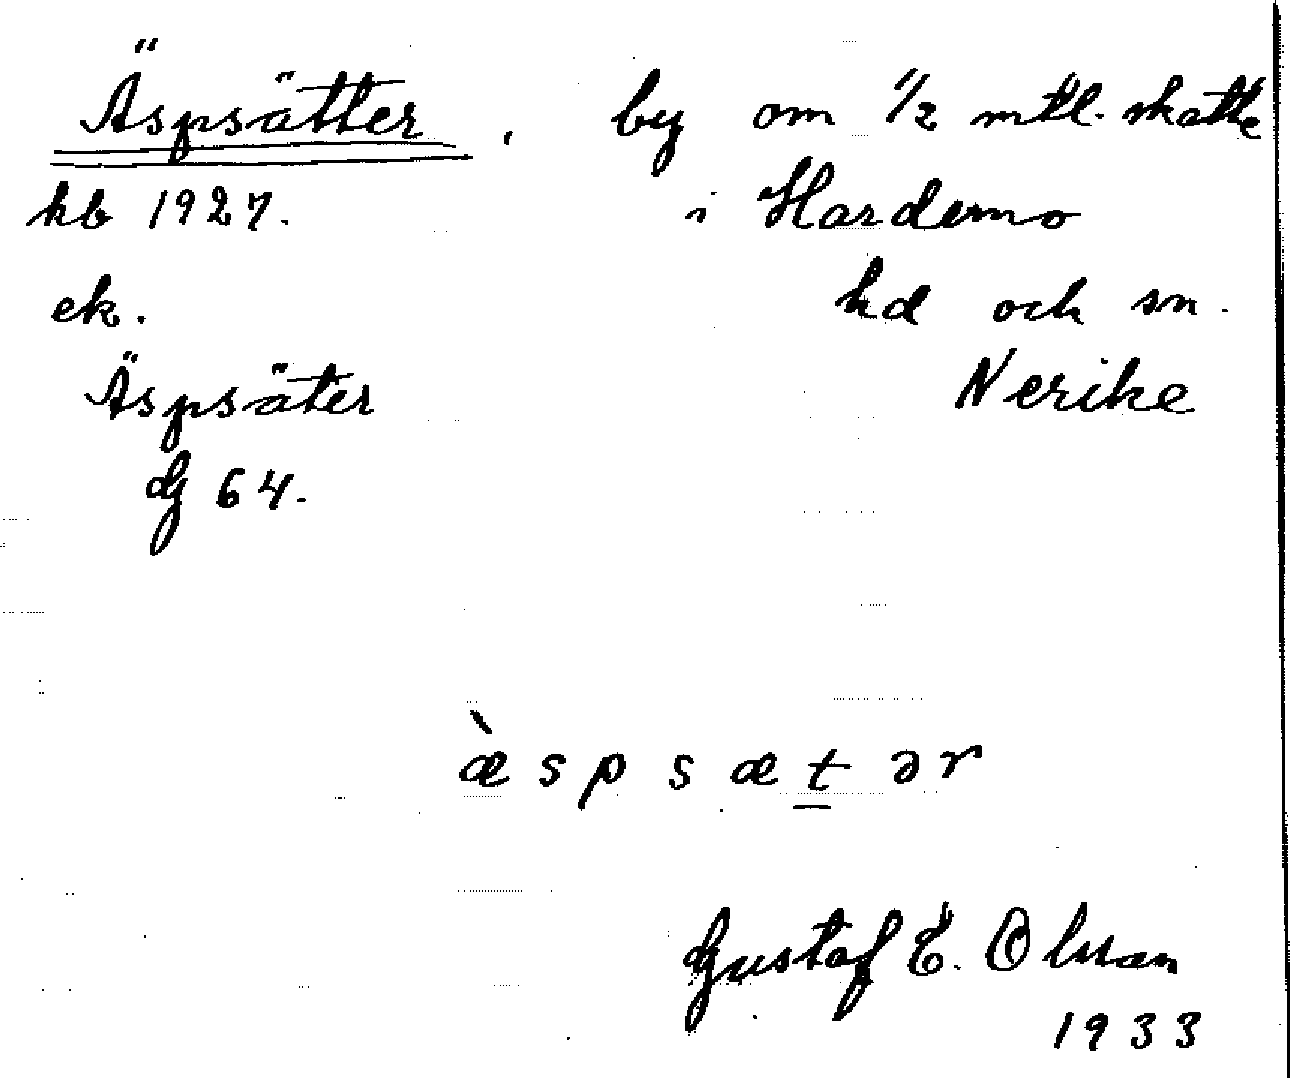 Äspsätter. by om 1/2 mtl. skatte
kb 1927. i Hardemo
ek. hd och sn.
Äspsäter Nerike
G 64.
æ̀spsætər
Gustaf E. Olsson
1933